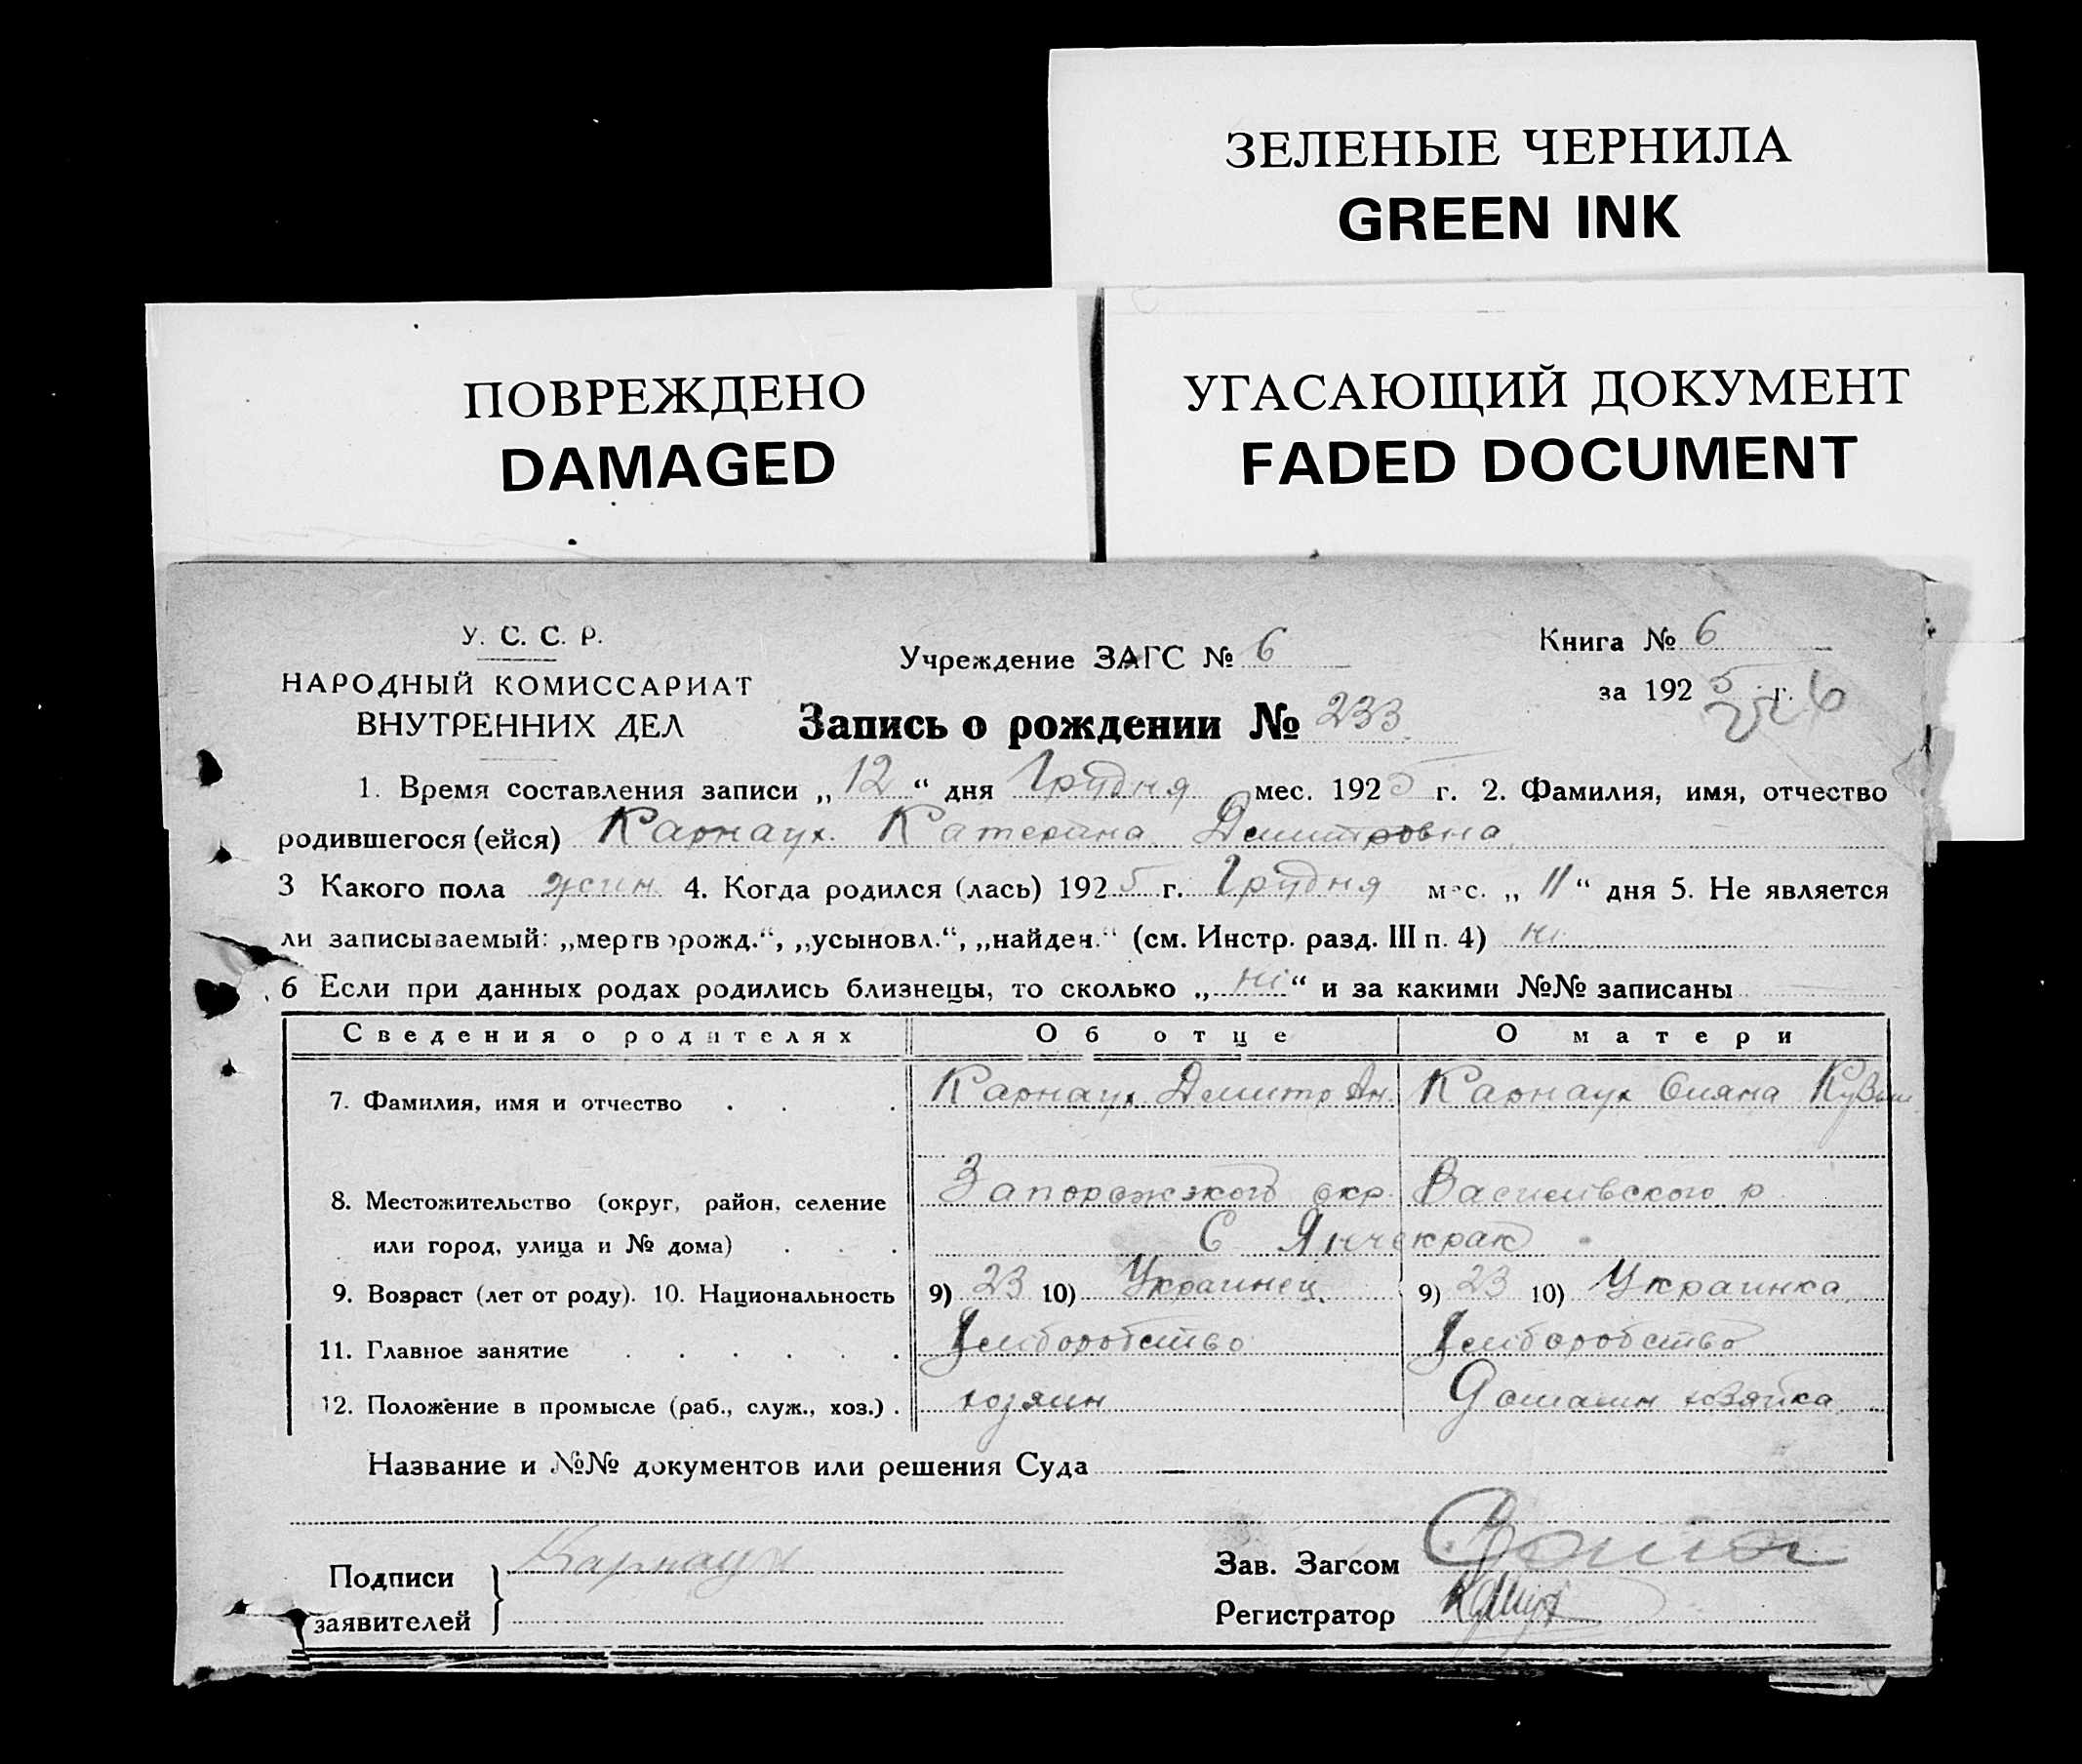 ЗЕЛЕНЫЕ ЧЕРНИЛА
GREEN INK
ПОВРЕЖДЕНО
DAMAGED
УГАСАЮЩИЙ ДОКУМЕНТ
FADED DOCUMENT
У. С. С. Р.
НАРОДНЫЙ КОМИССАРИАТ
ВНУТРЕННИХ ДЕЛ
Учреждение ЗАГС № 6
Книга № 6
за 1925 г.
Запись о рождении № 233
1. Время составления записи „12“ дня Грудня мес. 1925 г. 2. Фамилия, имя, отчество
родившегося (ейся) Карнаух Катерина Дмитровна
3 Какого пола жин. 4. Когда родился (лась) 1925 г. Грудня мес. „11“ дня 5. Не является
ли записываемый: „мертворожд.“, „усыновл.“, „найден.“ (см. Инстр. разд. III п. 4) ні
6 Если при данных родах родились близнецы, то сколько „ні“ и за какими №№ записаны
Сведения о родителях Об отце О матери
7. Фамилия, имя и отчество Карнаух Дмитр Ан. Карнаух
8. Местожительство (округ, район, селение Запорожского окр. Василівского р.
или город, улица и № дома) С Янчекрак
9. Возраст (лет от роду). 10. Национальность 9) 23 10) Украинец. 9) 23 10) Украинка
11. Главное занятие
12. Положение в промысле (раб., служ., хоз.) хозяин Домашн хозяйка
Название и №№ документов или решения Суда
Подписи Карнаух
заявителей
Зав. Загсом
Регистратор